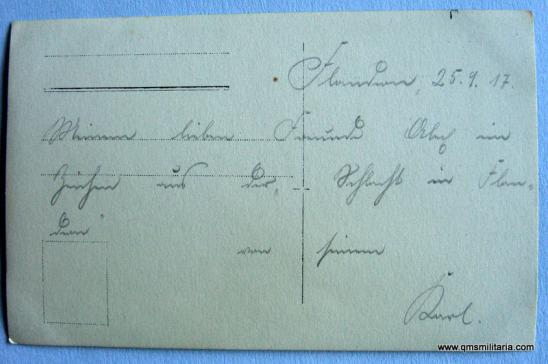 Flandern, 25.9.17.
Meinem lieben Freunde im
Zeichen aus der Schlacht in Flan-
dern
von seinem
Karl.
www.qmsmilitaria.com